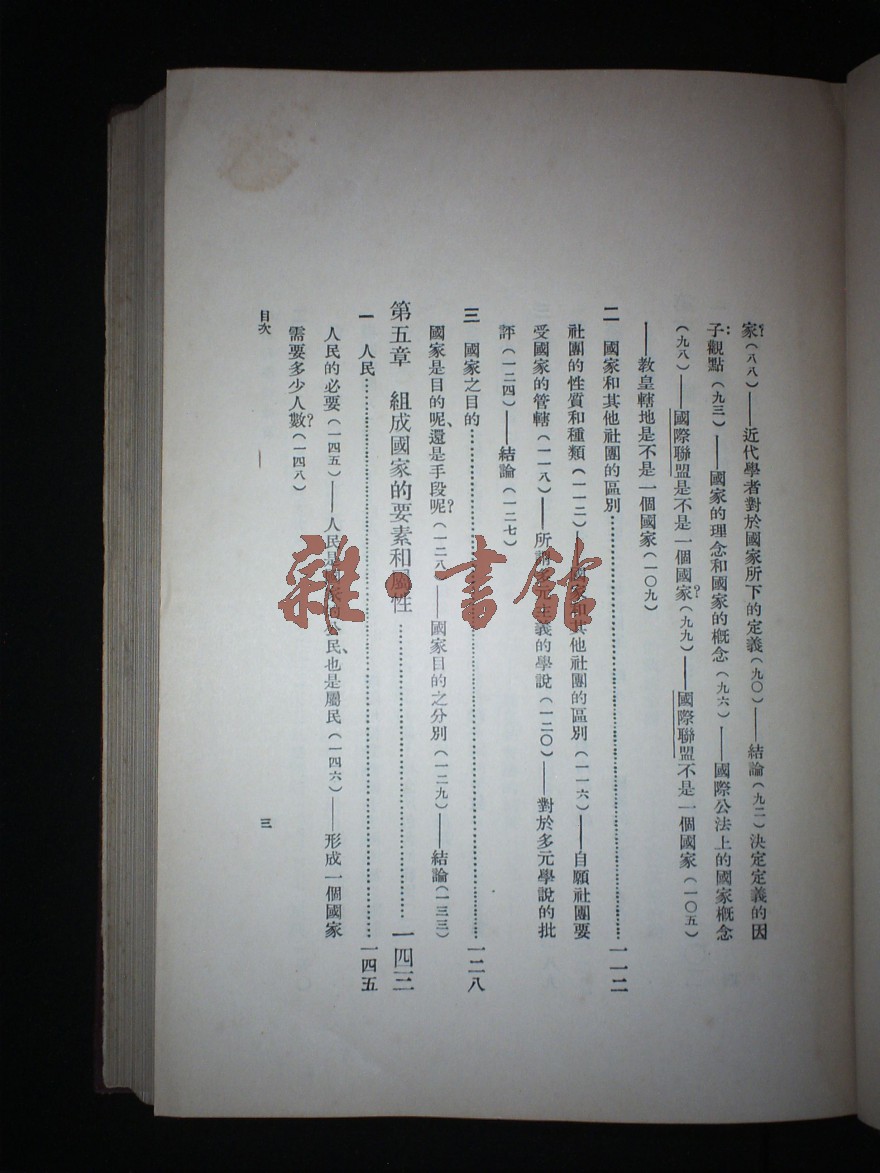 家？（八八）——近代學者對於國家所下的定義（九〇）——結論（九二）決定定義的因
子：觀點（九三）——國家的理念和國家的概念（九六）——國際公法上的國家概念
（九八）——國際聯盟是不是一個國家？（九九）——國際聯盟不是一個國家（一〇五）
——教皇轄地是不是一個國家（一〇九）
二　國家和其他社團的區別……一一二
社團的性質和種類（一一二）——國家和其他社團的區別（一一六）——自願社團要
受國家的管轄（一一八）——所謂多元主義的學說（一二〇）——對於多元學說的批
評（一二四）——結論（一二七）
三　國家之目的……一二八
國家是目的呢、還是手段呢？（一二八）——國家目的之分別（一二九）——結論（一三三）
第五章　組成國家的要素和屬性……一四三
一　人民……一四五
人民的必要（一四五）——人民是國家的公民、也是屬民（一四六）——形成一個國家
需要多少人數？（一四八）
目次
三
雜·書館